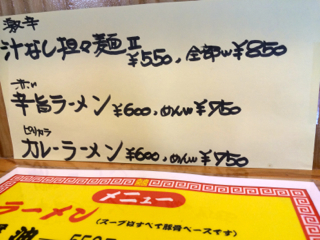 激辛
汁なし担々麺Ⅱ ¥550, 全部W ¥850
辛旨ラーメン ¥600, めんW ¥750
ピリカラ
カレーラーメン ¥600, めんW ¥750
メニュー
ラーメン (スープはすべて豚骨ベースです)